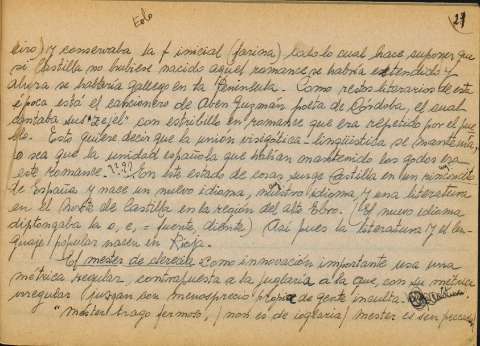 Eolo
27
eiro) y conservaba la f inicial (farina) todo lo cual hace suponer que
si Castilla no hubiese nacido aquel romance se habría extendido y
ahora se hablaría gallego en la Península. Como restos literarios de esta
época está el cancionero de Aben Guzmán poeta de Córdoba, el cual
cantaba sus "zejel" con estribillo en romance que era repetido por el pue
blo. Esto quiere decir que la unión visigótica-lingüística se mantenía,
o sea que la unidad española que habían mantenido los godos era
este romance. Con este estado de cosas surge Castilla en un rinconcito
de España y nace un nuevo idioma, nuestro idioma, y una literatura
en el norte de Castilla en la región del alto Ebro. (El nuevo idioma
diptongaba la o, e, = fuerte, diente) Así pues la literatura y el len
guaje popular nacen en Rioja.
El mester de clerecía como innovación importante usa una
métrica regular, contrapuesta a la juglaría a la que, con su métrica
irregular (juzgan con menosprecio propia de gente inculta.
"Mester trago fermoso, (non es de ioglaria) mester es sen pecado,